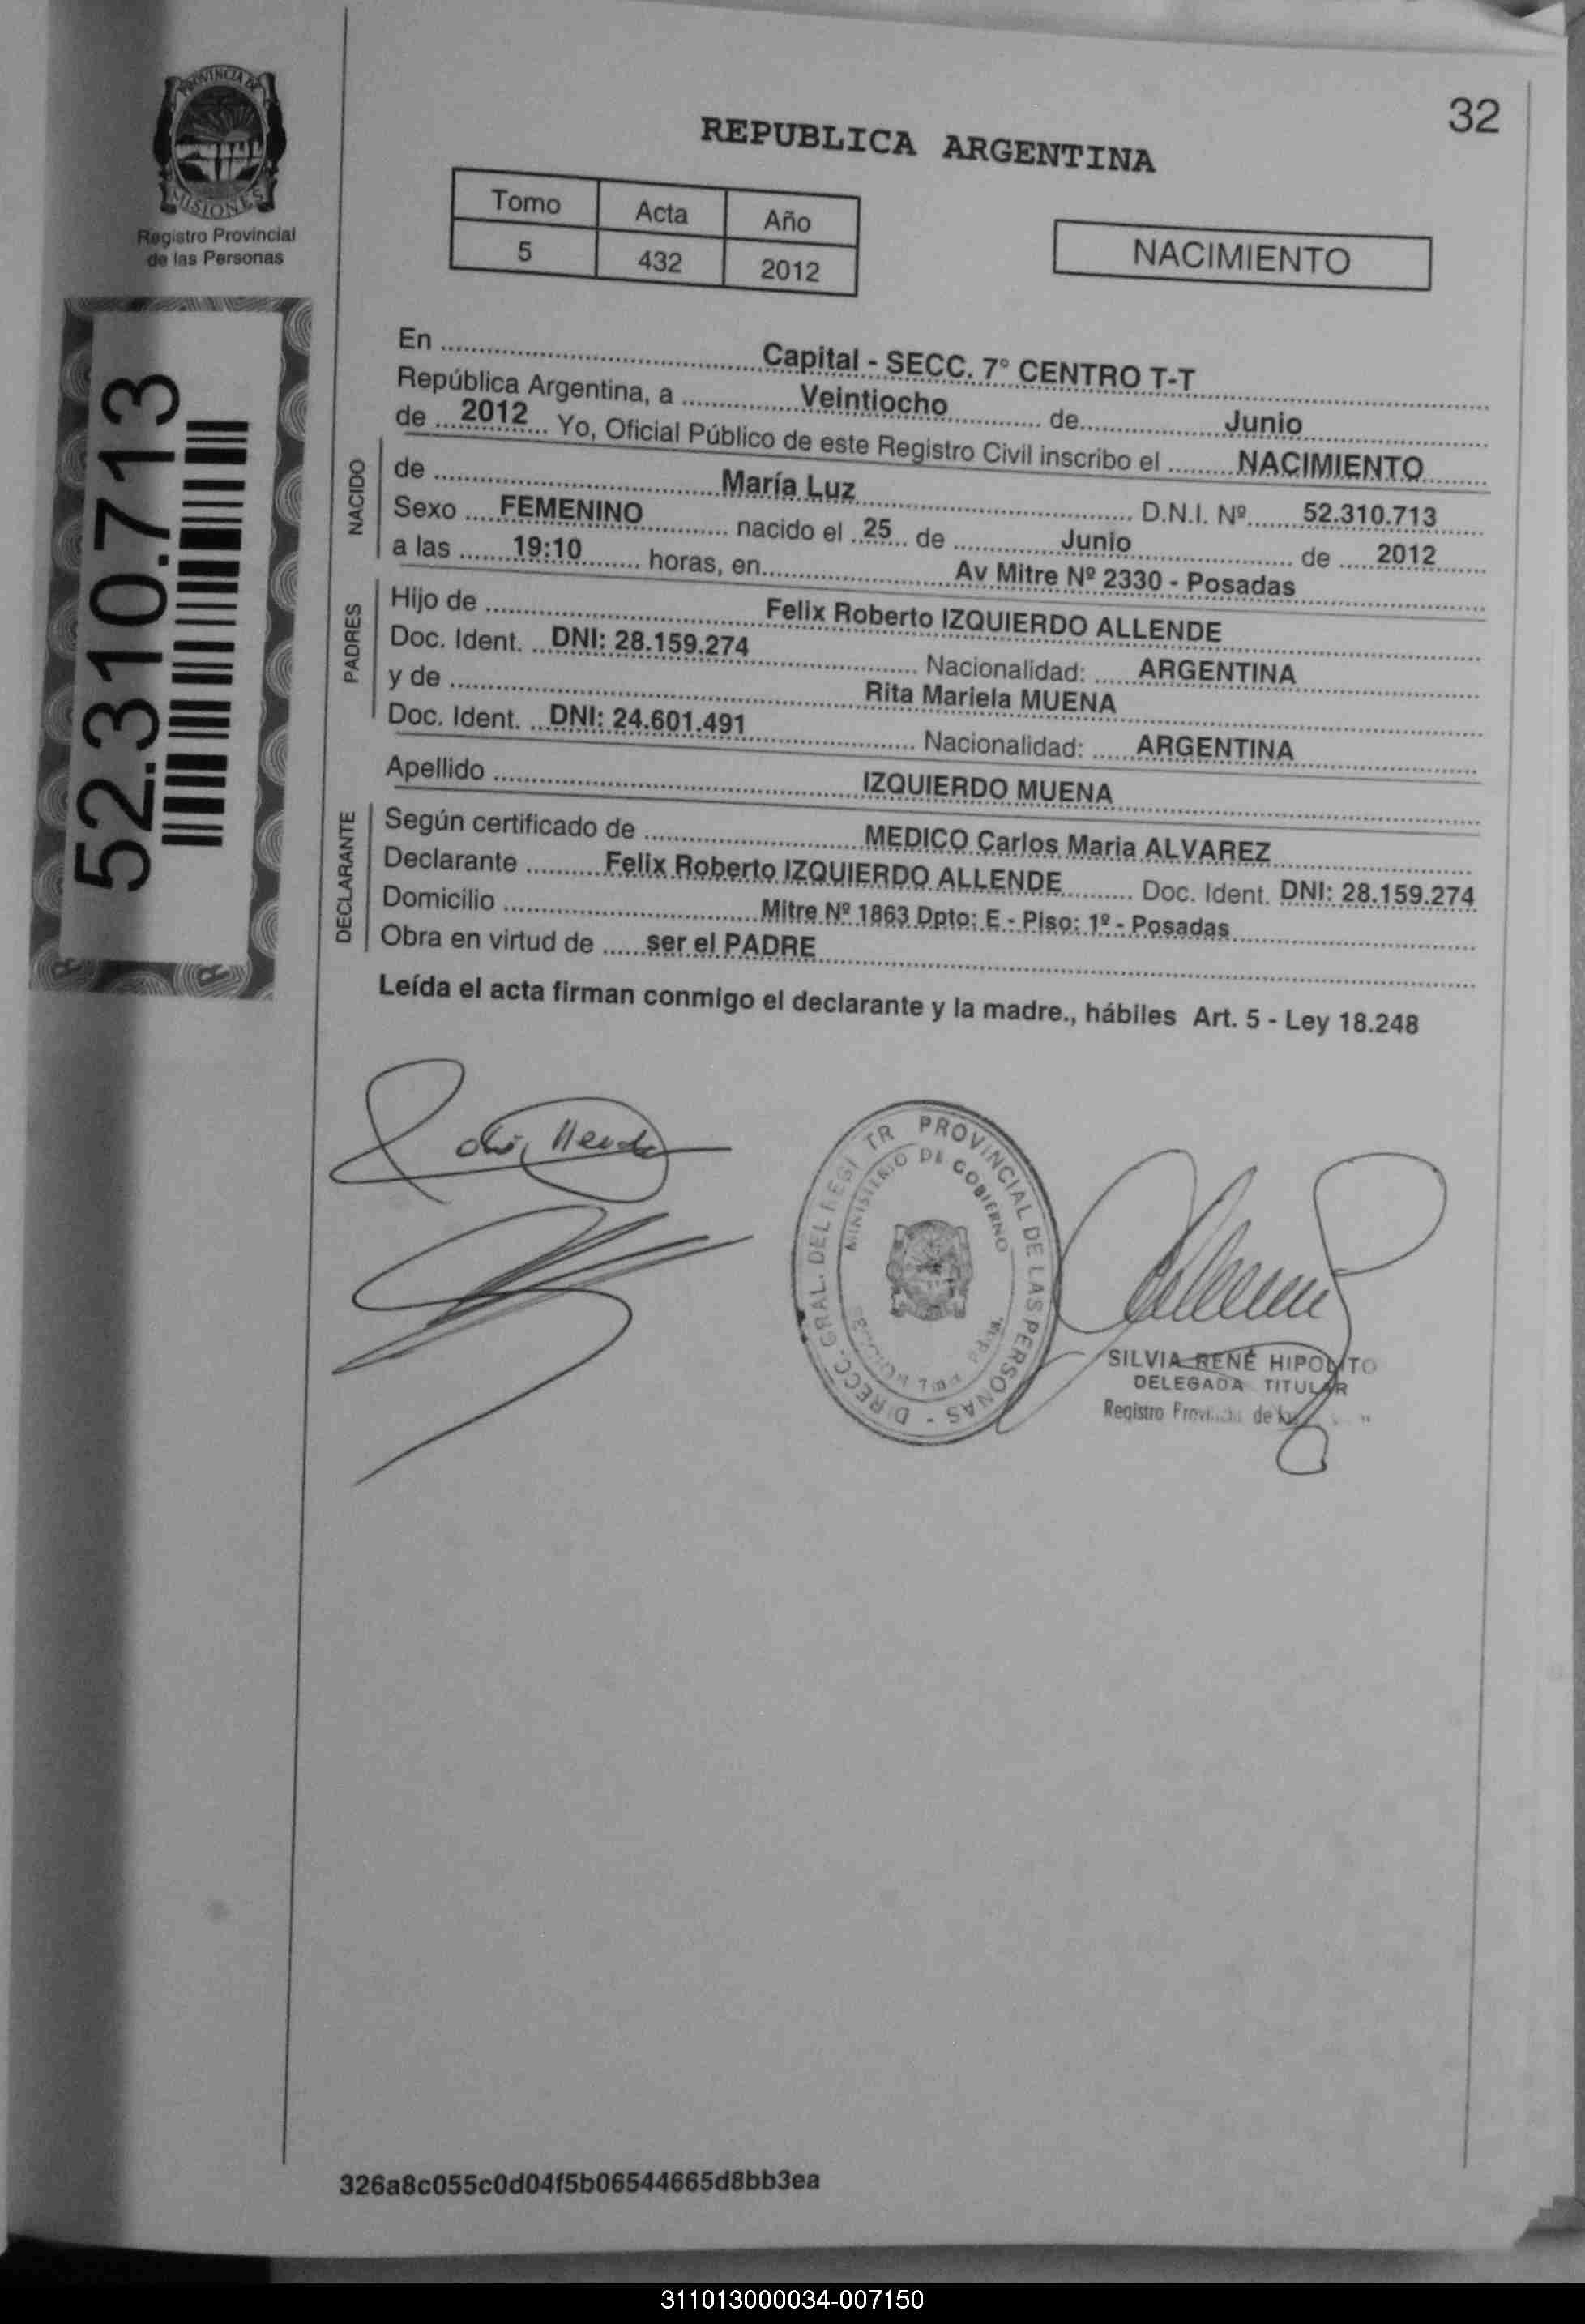 PROVINCIA DE
MISIONES
Registro Provincial
de las Personas
52.310.713
32
REPUBLICA ARGENTINA
Tomo Acta Año
5 432 2012
NACIMIENTO
En Capital - SECC. 7° CENTRO T-T
República Argentina, a Veintiocho de Junio
de 2012 Yo, Oficial Público de este Registro Civil inscribo el NACIMIENTO
NACIDO
de María Luz D.N.I. Nº 52.310.713
Sexo FEMENINO nacido el 25 de Junio de 2012
a las 19:10 horas, en Av Mitre Nº 2330 - Posadas
PADRES
Hijo de Felix Roberto IZQUIERDO ALLENDE
Doc. Ident. DNI: 28.159.274 Nacionalidad: ARGENTINA
y de Rita Mariela MUENA
Doc. Ident. DNI: 24.601.491 Nacionalidad: ARGENTINA
Apellido IZQUIERDO MUENA
DECLARANTE
Según certificado de MEDICO Carlos Maria ALVAREZ
Declarante Felix Roberto IZQUIERDO ALLENDE Doc. Ident. DNI: 28.159.274
Domicilio Mitre Nº 1863 Dpto: E - Piso: 1º - Posadas
Obra en virtud de ser el PADRE
Leída el acta firman conmigo el declarante y la madre., hábiles Art. 5 - Ley 18.248
PROVINCIAL DE LAS PERSONAS
MINISTERIO DE GOBIERNO
SILVIA RENÉ HIPOLITO
DELEGADA TITULAR
Registro de
326a8c055c0d04f5b06544665d8bb3ea
311013000034-007150